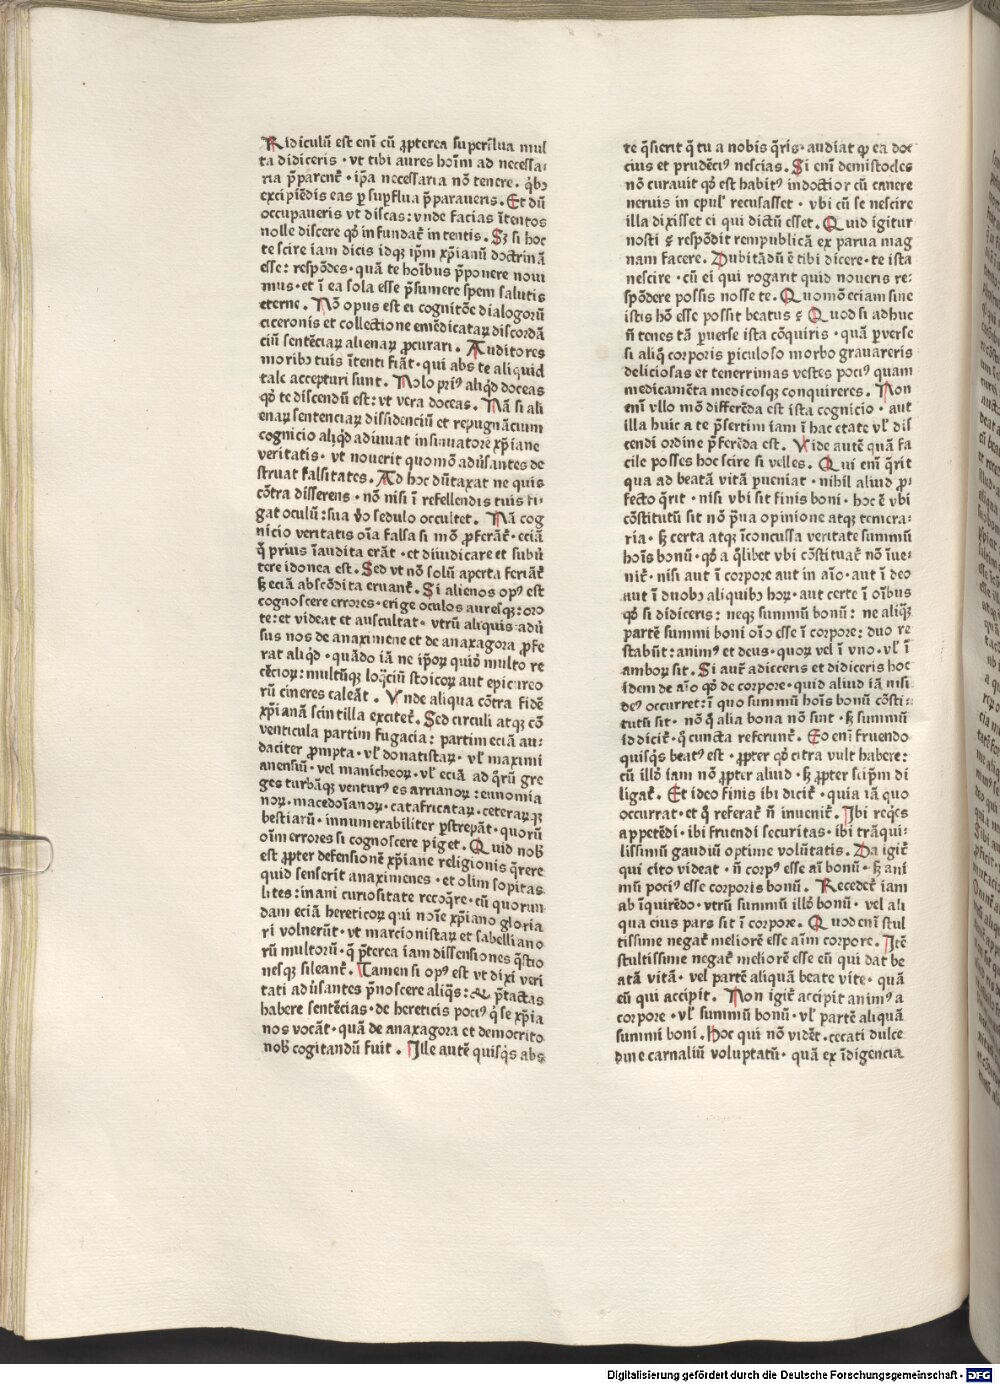 Ridiculū est enī cū ꝓpterea superflua mul
ta didiceris · vt tibi aures hoīm ad necessa-
ria p̄parent᷑ · ip̄a necessaria nō tenere · qͥbꝫ
excipiēdis eas ꝑ supflua p̄paraueris. Et dū
occupaueris vt discas: vnde facias ītentos
nolle discere qd̕ in fundat᷑ in tentis. Sꝫ si hoc
te scire iam dicis idqꝫ ip̄m xp̄ianū doctrinā
esse: respōdes · quā te hoībus p̄ponere noui
mus · et ī ea sola esse p̄sumere spem salutis
eterne. Nō opus est ei cognitōe dialogorū
ciceronis et collectione emēdicataꝝ discordā
ciū sentēciaꝝ alienaꝝ ꝓcurari. Auditores
moribꝫ tuis ītenti fiāt · qui abs te aliquid
tale accepturi sunt. Nolo priꝰ aliqͥd doceas
qd̕ te discendū est: vt vera doceas. Nā si ali
enaꝝ sentenciaꝝ dissidenciū et repugnācium
cognicio aliqͥd adiuuat insinuatorē xp̄iane
veritatis · vt nouerit quomō adu̕santes de
struat falsitates. Ad hoc dūtaxat ne quis
cōtra disserens · nō nisi ī refellendis tuis ri-
gat oculū: sua v̕o sedulo occultet. Nā cog
nicio veritatis oīa falsa si mō ꝓferāt᷑ · eciā
q̄ prius īaudita erāt · et diiudicare et subu̕
tere idonea est. Sed vt nō solū aperta feriāt᷑
sꝫ eciā abscōdita eruant᷑. Si alienos opꝰ est
cognoscere errores · erige oculos auresqꝫ: oro
te: et videat et auscultat · vtrū aliquis adu̕
sus nos de anaximene et de anaxagora ꝓfe
rat aliqͥd · quādo iā ne ip̄oꝝ quidͣ multo re
cēcioꝝ: multūqꝫ loq̄ciū stoicoꝝ aut epicureo
rū cineres caleāt. Vnde aliqua cōtra fidē
xp̄ianā scintilla excitet᷑. Sed circuli atqꝫ cō
venticula partim fugacia: partim eciā au-
daciter ꝓmpta · vł donatistaꝝ · vł maximi
anensiū · vel manicheoꝝ · vł eciā ad qͣrū gre
ges turbāqꝫ venturꝰ es arrianoꝝ: eunomia
noꝝ · macedoīanoꝝ · catafricataꝝ · ceteraꝝqꝫ
bestiarū · innumerabiliter p̄strepāt · quorū
oīm errores si cognoscere piget. Quid nob̕
est ꝓpter defensionē xp̄iane religionis q̄rere
quid senserit anaximenes · et olim sopitas
lites: inani curiositate recoq̄re · cū quorun
dam eciā hereticoꝝ qui noīe xp̄iano gloria
ri volnerūt · vt marcionistaꝝ et sabelliano
rū multorū · q̄ p̄terea iam dissensiones q̄stio
nesqꝫ sileant᷑. Tamen si opꝰ est vt dixi veri
tati adu̕santes p̄noscere aliq̄s: & p̄tactas
habere sentēcias · de hereticis pociꝰ qͥ se xp̄ia
nos vocāt · quā de anaxagora et democrito
nob̕ cogitandū fuit. Ille autē quisqͥs abs
te q̄sierit q̄ tu a nobis q̄ris · audiat qꝙ ea doc
cius et prudēciꝰ nescias. Si enī demistocles
nō curauit qd̕ est habitꝰ indoctior cū canere
neruis in epul̕ recusasset · vbi cū se nescire
illa dixisset ei qui dictū esset. Quid igitur
nosti ? respōdit rempublicā ex parua mag
nam facere. Dubitādū ē tibi dicere · te ista
nescire · cū ei qui rogarit quid noueris re-
spōdere possis nosse te. Quomō eciam sine
istis hō esse possit beatus ? Quod si adhuc
n̄ tenes tā ꝑuerse ista cōquiris · quā ꝑuerse
si aliq̄ corporis ꝑiculoso morbo grauareris
deliciosas et tenerrimas vestes pociꝰ quam
medicamēta medicosqꝫ conquireres. Non
enī vllo mō differēda est ista cognicio · aut
illa huic a te p̄sertim iam ī hac etate vł dis
cendi ordine p̄ferēda est. Vide autē quā fa
cile posses hoc scire si velles. Qui enī q̄rit
qua ad beatā vitā ꝑueniat · nihil aliud ꝓ-
fecto q̄rit · nisi vbi sit finis boni · hoc ē vbi
cōstitutū sit nō p̄ua opinione atqꝫ temera-
ria · sꝫ certa atqꝫ īconcussa veritate summū
hoīs bonū · qd̕ a q̄libet vbi cōstituat᷑ nō īue-
nit᷑ · nisi aut ī corpore aut in aīo · aut ī deo
aut ī duobꝫ aliquibꝫ hoꝝ · aut certe ī oībus
qd̕ si didiceris: neqꝫ summū bonū: ne aliq̄ꝫ
partē summi boni oīo esse ī corpore: duo re
stabūt: animꝰ et deus · quoꝝ vel ī vno · vł ī
amboꝝ sit. Si aut̄ adieceris et didiceris hoc
idem de aīo qd̕ de corpore · quid aliud iā nisi
deꝰ occurret: ī quo summū hoīs bonū cōsti-
tutū sit · nō q̄ alia bona nō sunt · sꝫ summū
id dicit᷑ · q̄ cuncta referunt᷑. Eo enī fruendo
quisqͥs beatꝰ est · ꝓpter qd̕ citra vult habere:
cū illō iam nō ꝓpter aliud · sꝫ ꝓpter seip̄m di
ligat᷑. Et ideo finis ibi dicit᷑ · quia iā quo
occurrat · et q̄ referat᷑ n̄ inuenit᷑. Ibi req̄es
appetēdi · ibi fruendi securitas · ibi trāqui-
lissimū gaudiū optime volūtatis. Da igit᷑
qui cito videat · n̄ corpꝰ esse aī bonū · sꝫ ani
mū pociꝰ esse corporis bonū. Recedet᷑ iam
ab īquirēdo · vtrū summū illō bonū · vel ali
qua eius pars sit ī corpore. Quod enī stul
tissime negat᷑ meliorē esse aīm corpore. Itē
stultissime negat᷑ meliorē esse eū qui dat be
atā vitā · vel partē aliquā beate vite · quā
eū qui accipit. Non igit᷑ accipit animꝰ a
corpore · vł summū bonū · vł partē aliquā
summi boni. Hoc qui nō vidēt · cecati dulce
dine carnaliū voluptatū · quā ex īdigencia
Digitalisierung gefördert durch die Deutsche Forschungsgemeinschaft - DFG